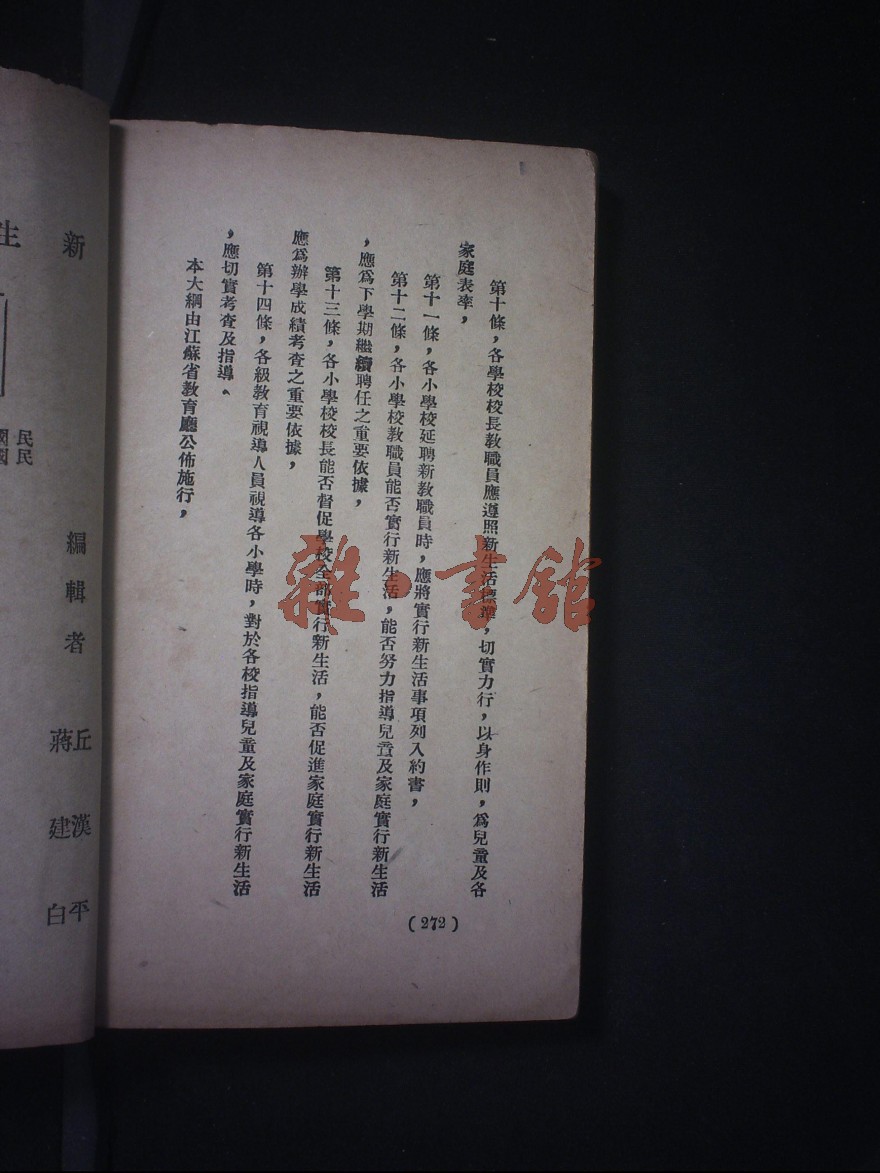 第十條，各學校校長教職員應遵照新生活標準，切實力行，以身作則，爲兒童及各
家庭表率，
第十一條，各小學校延聘新教職員時，應將實行新生活事項列入約書，
第十二條，各小學校教職員能否實行新生活，能否努力指導兒童及家庭實行新生活
，應爲下學期繼續聘任之重要依據，
第十三條，各小學校校長能否督促學校全部實行新生活，能否促進家庭實行新生活
應爲辦學成績考查之重要依據，
第十四條，各級教育視導人員視導各小學時，對於各校指導兒童及家庭實行新生活
，應切實考查及指導、
本大綱由江蘇省教育廳公佈施行，
(272)
雜·書館
新
編輯者
丘漢平
蔣建白
生
民國
民國